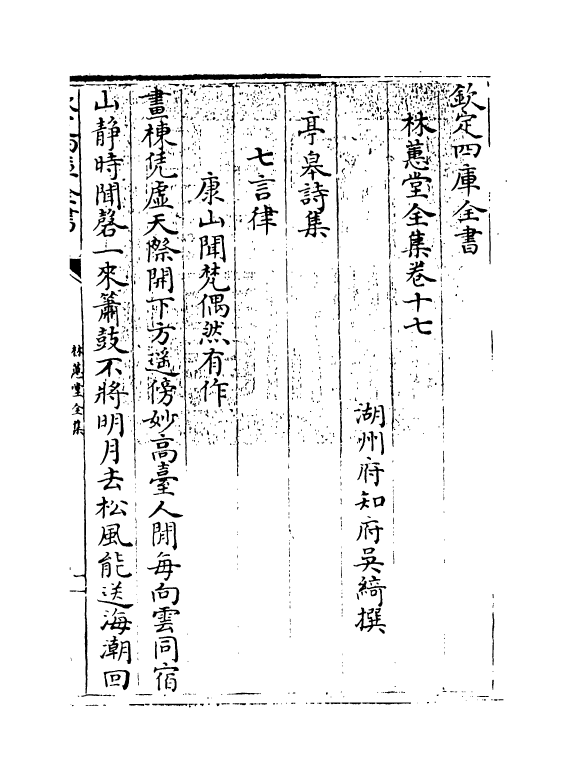 欽定四庫全書
林蕙堂全集卷十七
湖州府知府吳綺撰
亭臯詩集
七言律
康山聞梵偶然有作
畫棟凭虛天際開下方遥傍妙高臺人閒每向雲同宿
山静時聞磬一來簫鼓不將明月去松風能送海潮回
林蕙堂全集
一